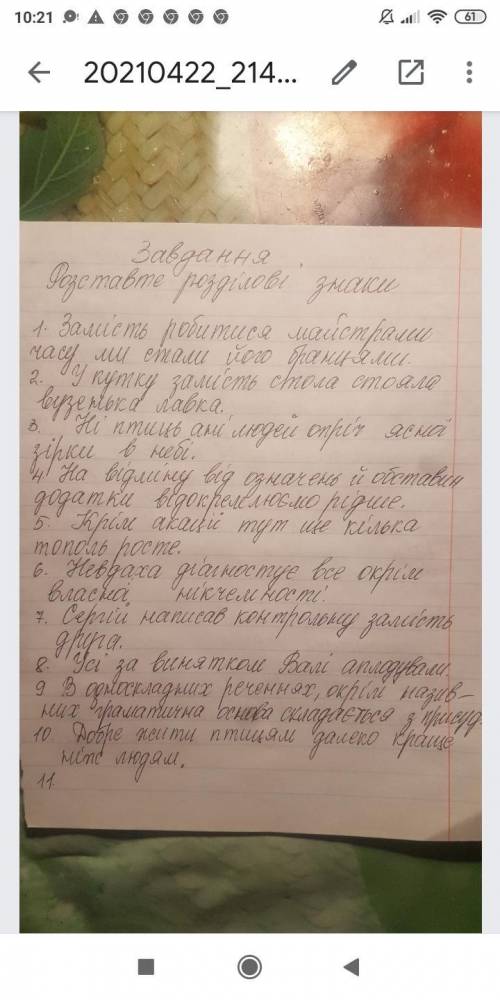 10:21
61
20210422_214...
Завдання
Розставте розділові знаки
1. Замість робитися майстрами
часу ми стали його бранцями.
2. У кутку замість стола стояла
вузенька лавка.
3. Ні птиць ані людей опріч ясної
зірки в небі.
4. На відміну від означень й обставин
додатки відокремлюємо рідше.
5. Крім акацій тут ще кілька
тополь росте.
6. Невдаха діагностує все окрім
власної нікчемності.
7. Сергій написав контрольну замість
друга.
8. Усі за винятком Валі аплодували.
9 В односкладних реченнях, окрім назив-
них граматична основа складається з присуд.
10. Добре жити птицям далеко краще
ніж людям.
11.